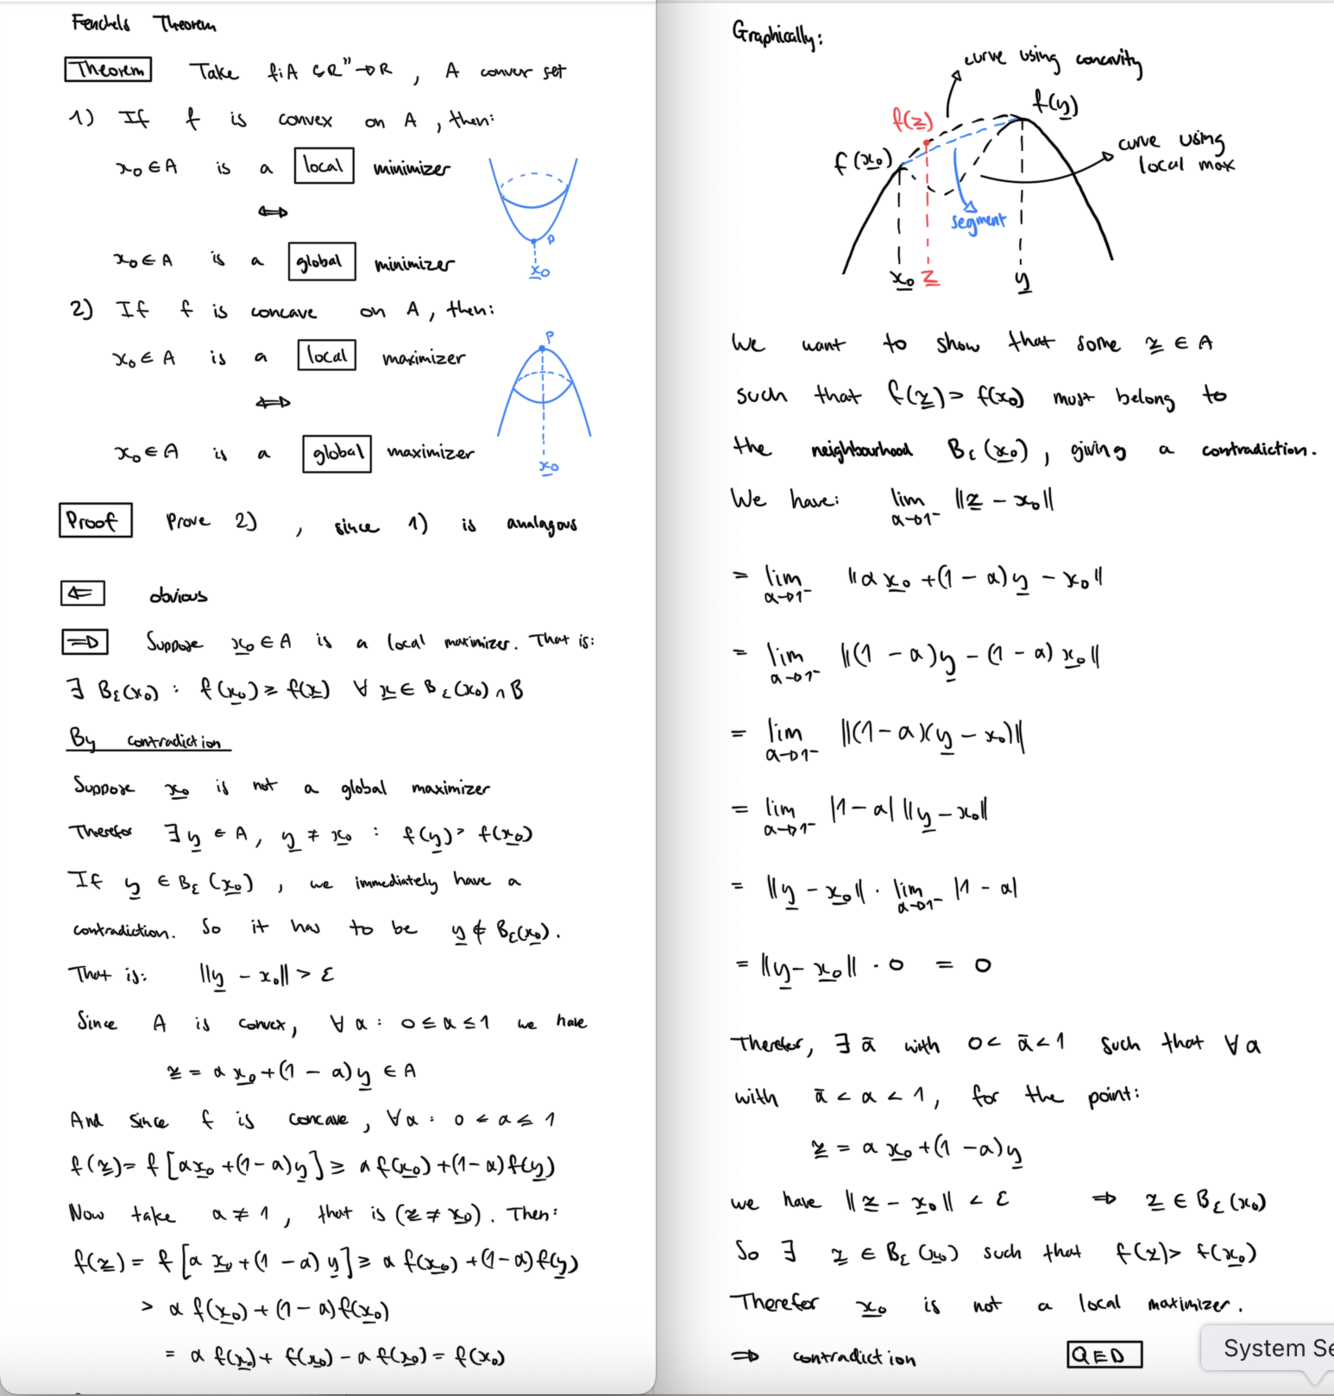 Fenchels Theorem
Theorem Take f: A ⊆ R^n → R , A convex set
1) If f is convex on A , then:
x₀ ∈ A is a local minimizer
⟺
x₀ ∈ A is a global minimizer
P
x₀
2) If f is concave on A , then:
x₀ ∈ A is a local maximizer
⟺
x₀ ∈ A is a global maximizer
P
x₀
Proof Prove 2) , since 1) is analagous
⇐ obvious
⇒ Suppose x₀ ∈ A is a local maximizer. That is:
∃ Bε(x₀) : f(x₀) ≥ f(x) ∀ x ∈ Bε(x₀) ∩ B
By contradiction
Suppose x₀ is not a global maximizer
Therefor ∃ y ∈ A, y ≠ x₀ : f(y) > f(x₀)
If y ∈ Bε(x₀) , we immediately have a
contradiction. So it has to be y ∉ Bε(x₀).
That is: ||y - x₀|| > ε
Since A is convex, ∀ α : 0 ≤ α ≤ 1 we have
z = α x₀ + (1 - α) y ∈ A
And since f is concave , ∀ α : 0 ≤ α ≤ 1
f(z) = f[αx₀ + (1 - α)y] ≥ α f(x₀) + (1 - α) f(y)
Now take α ≠ 1 , that is (z ≠ x₀). Then:
f(z) = f[α x₀ + (1 - α) y] ≥ α f(x₀) + (1 - α) f(y)
> α f(x₀) + (1 - α) f(x₀)
= α f(x₀) + f(x₀) - α f(x₀) = f(x₀)
Graphically:
curve using concavity
f(y)
f(z)
f(x₀)
curve using
local max
segment
x₀ z y
We want to show that some z ∈ A
such that f(z) > f(x₀) must belong to
the neighbourhood Bε(x₀) , giving a contradiction.
We have: lim α→1⁻ ||z - x₀||
= lim α→1⁻ ||α x₀ + (1 - α) y - x₀||
= lim α→1⁻ ||(1 - α)y - (1 - α) x₀||
= lim α→1⁻ ||(1 - α)(y - x₀)||
= lim α→1⁻ |1 - α| ||y - x₀||
= ||y - x₀|| · lim α→1⁻ |1 - α|
= ||y - x₀|| · 0 = 0
Therefor, ∃ ᾱ with 0 < ᾱ < 1 such that ∀ α
with ᾱ < α < 1 , for the point:
z = α x₀ + (1 - α) y
we have ||z - x₀|| < ε ⇒ z ∈ Bε(x₀)
So ∃ z ∈ Bε(x₀) such that f(z) > f(x₀)
Therefor x₀ is not a local maximizer.
⇒ contradiction QED
System Se